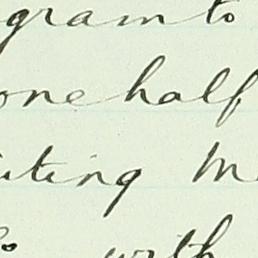 gram to
one half
iting M
with